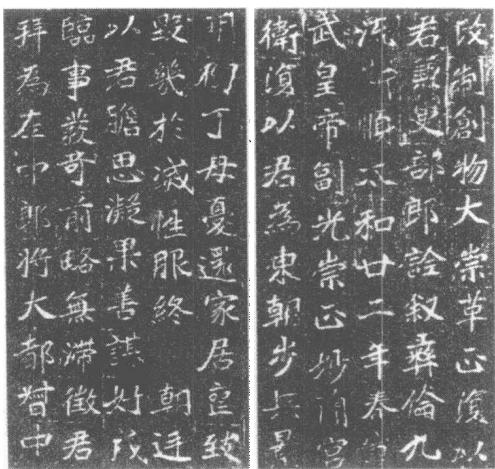 改制創物大崇革正復以
君兼吏部郎詮叙彝倫九
流斯順太和廿二年奉宣
武皇帝副光崇正妙簡宮
衛復以君為東朝步兵景
明初丁母憂還家居喪致
毀幾於滅性服終 朝廷
以君膽思凝果善謀好成
臨事發奇前略無滯徵君
拜為左中郎將大都督中